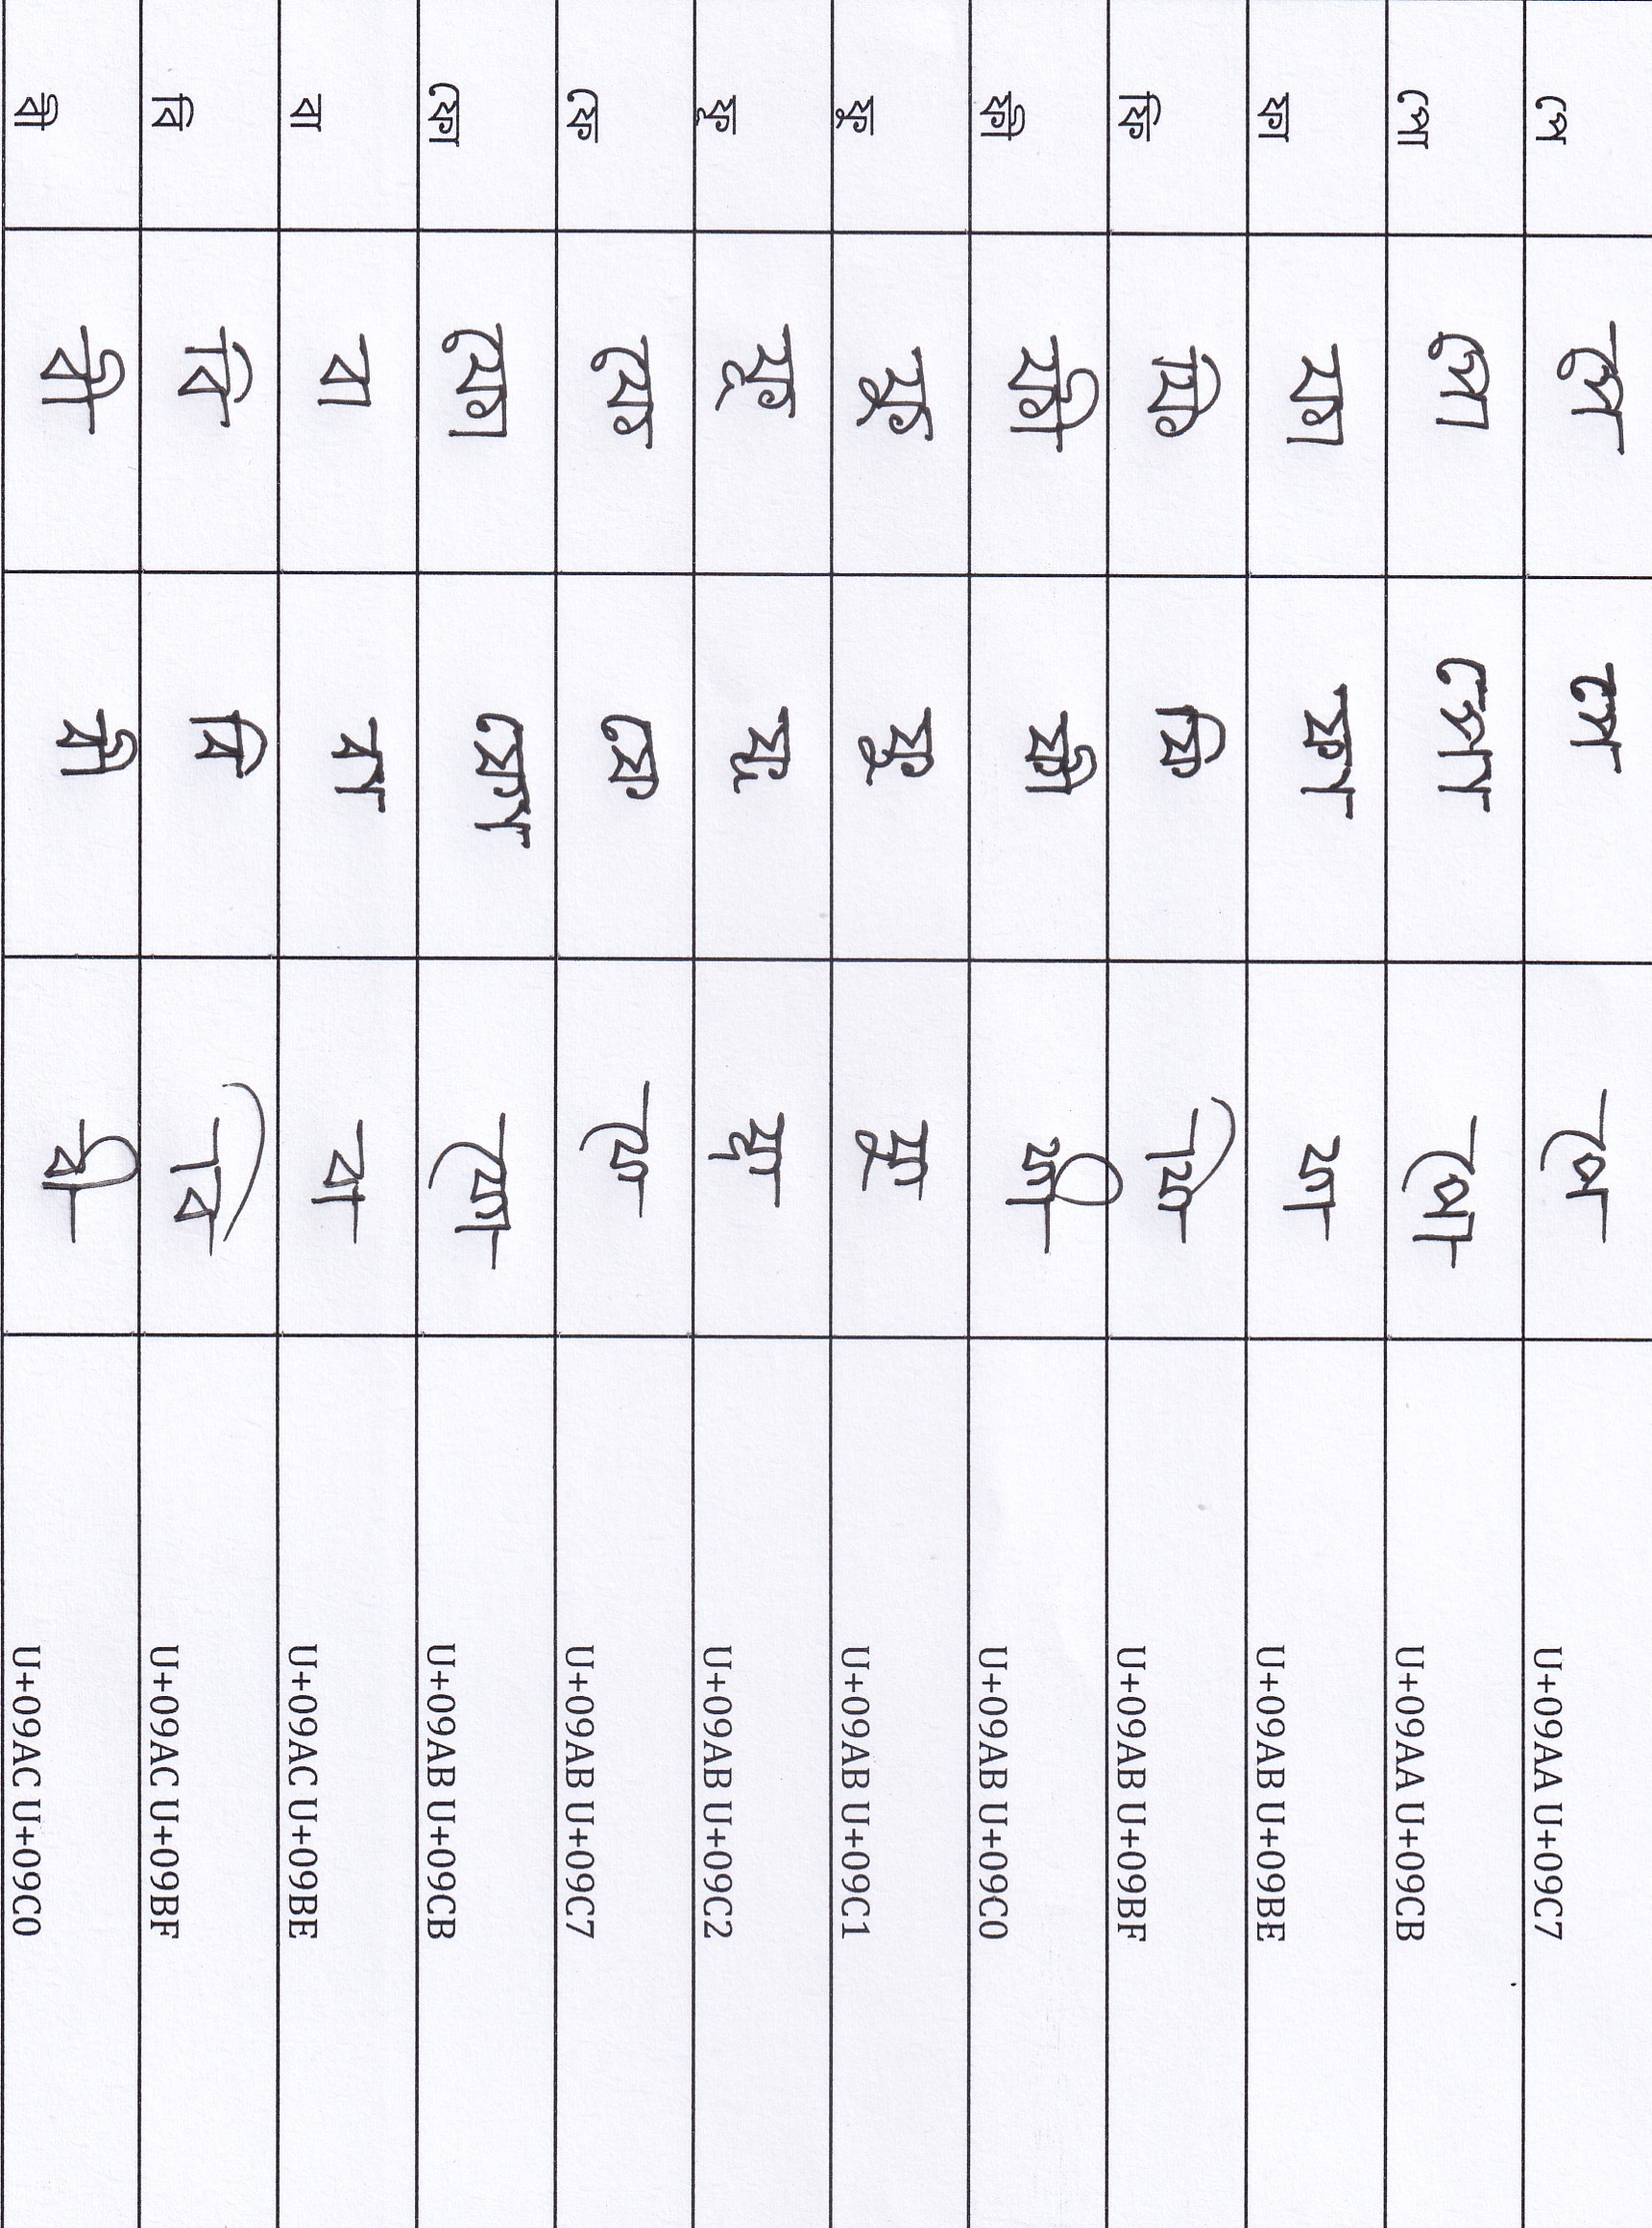 পে পে পে পে U+09AA U+09C7
পো পো পো পো U+09AA U+09CB
ফা ফা ফা ফা U+09AB U+09BE
ফি ফি ফি ফি U+09AB U+09BF
ফী ফী ফী ফী U+09AB U+09C0
ফু ফু ফু ফু U+09AB U+09C1
ফূ ফূ ফূ ফূ U+09AB U+09C2
ফে ফে ফে ফে U+09AB U+09C7
ফো ফো ফো ফো U+09AB U+09CB
বা বা বা বা U+09AC U+09BE
বি বি বি বি U+09AC U+09BF
বী বী বী বী U+09AC U+09C0